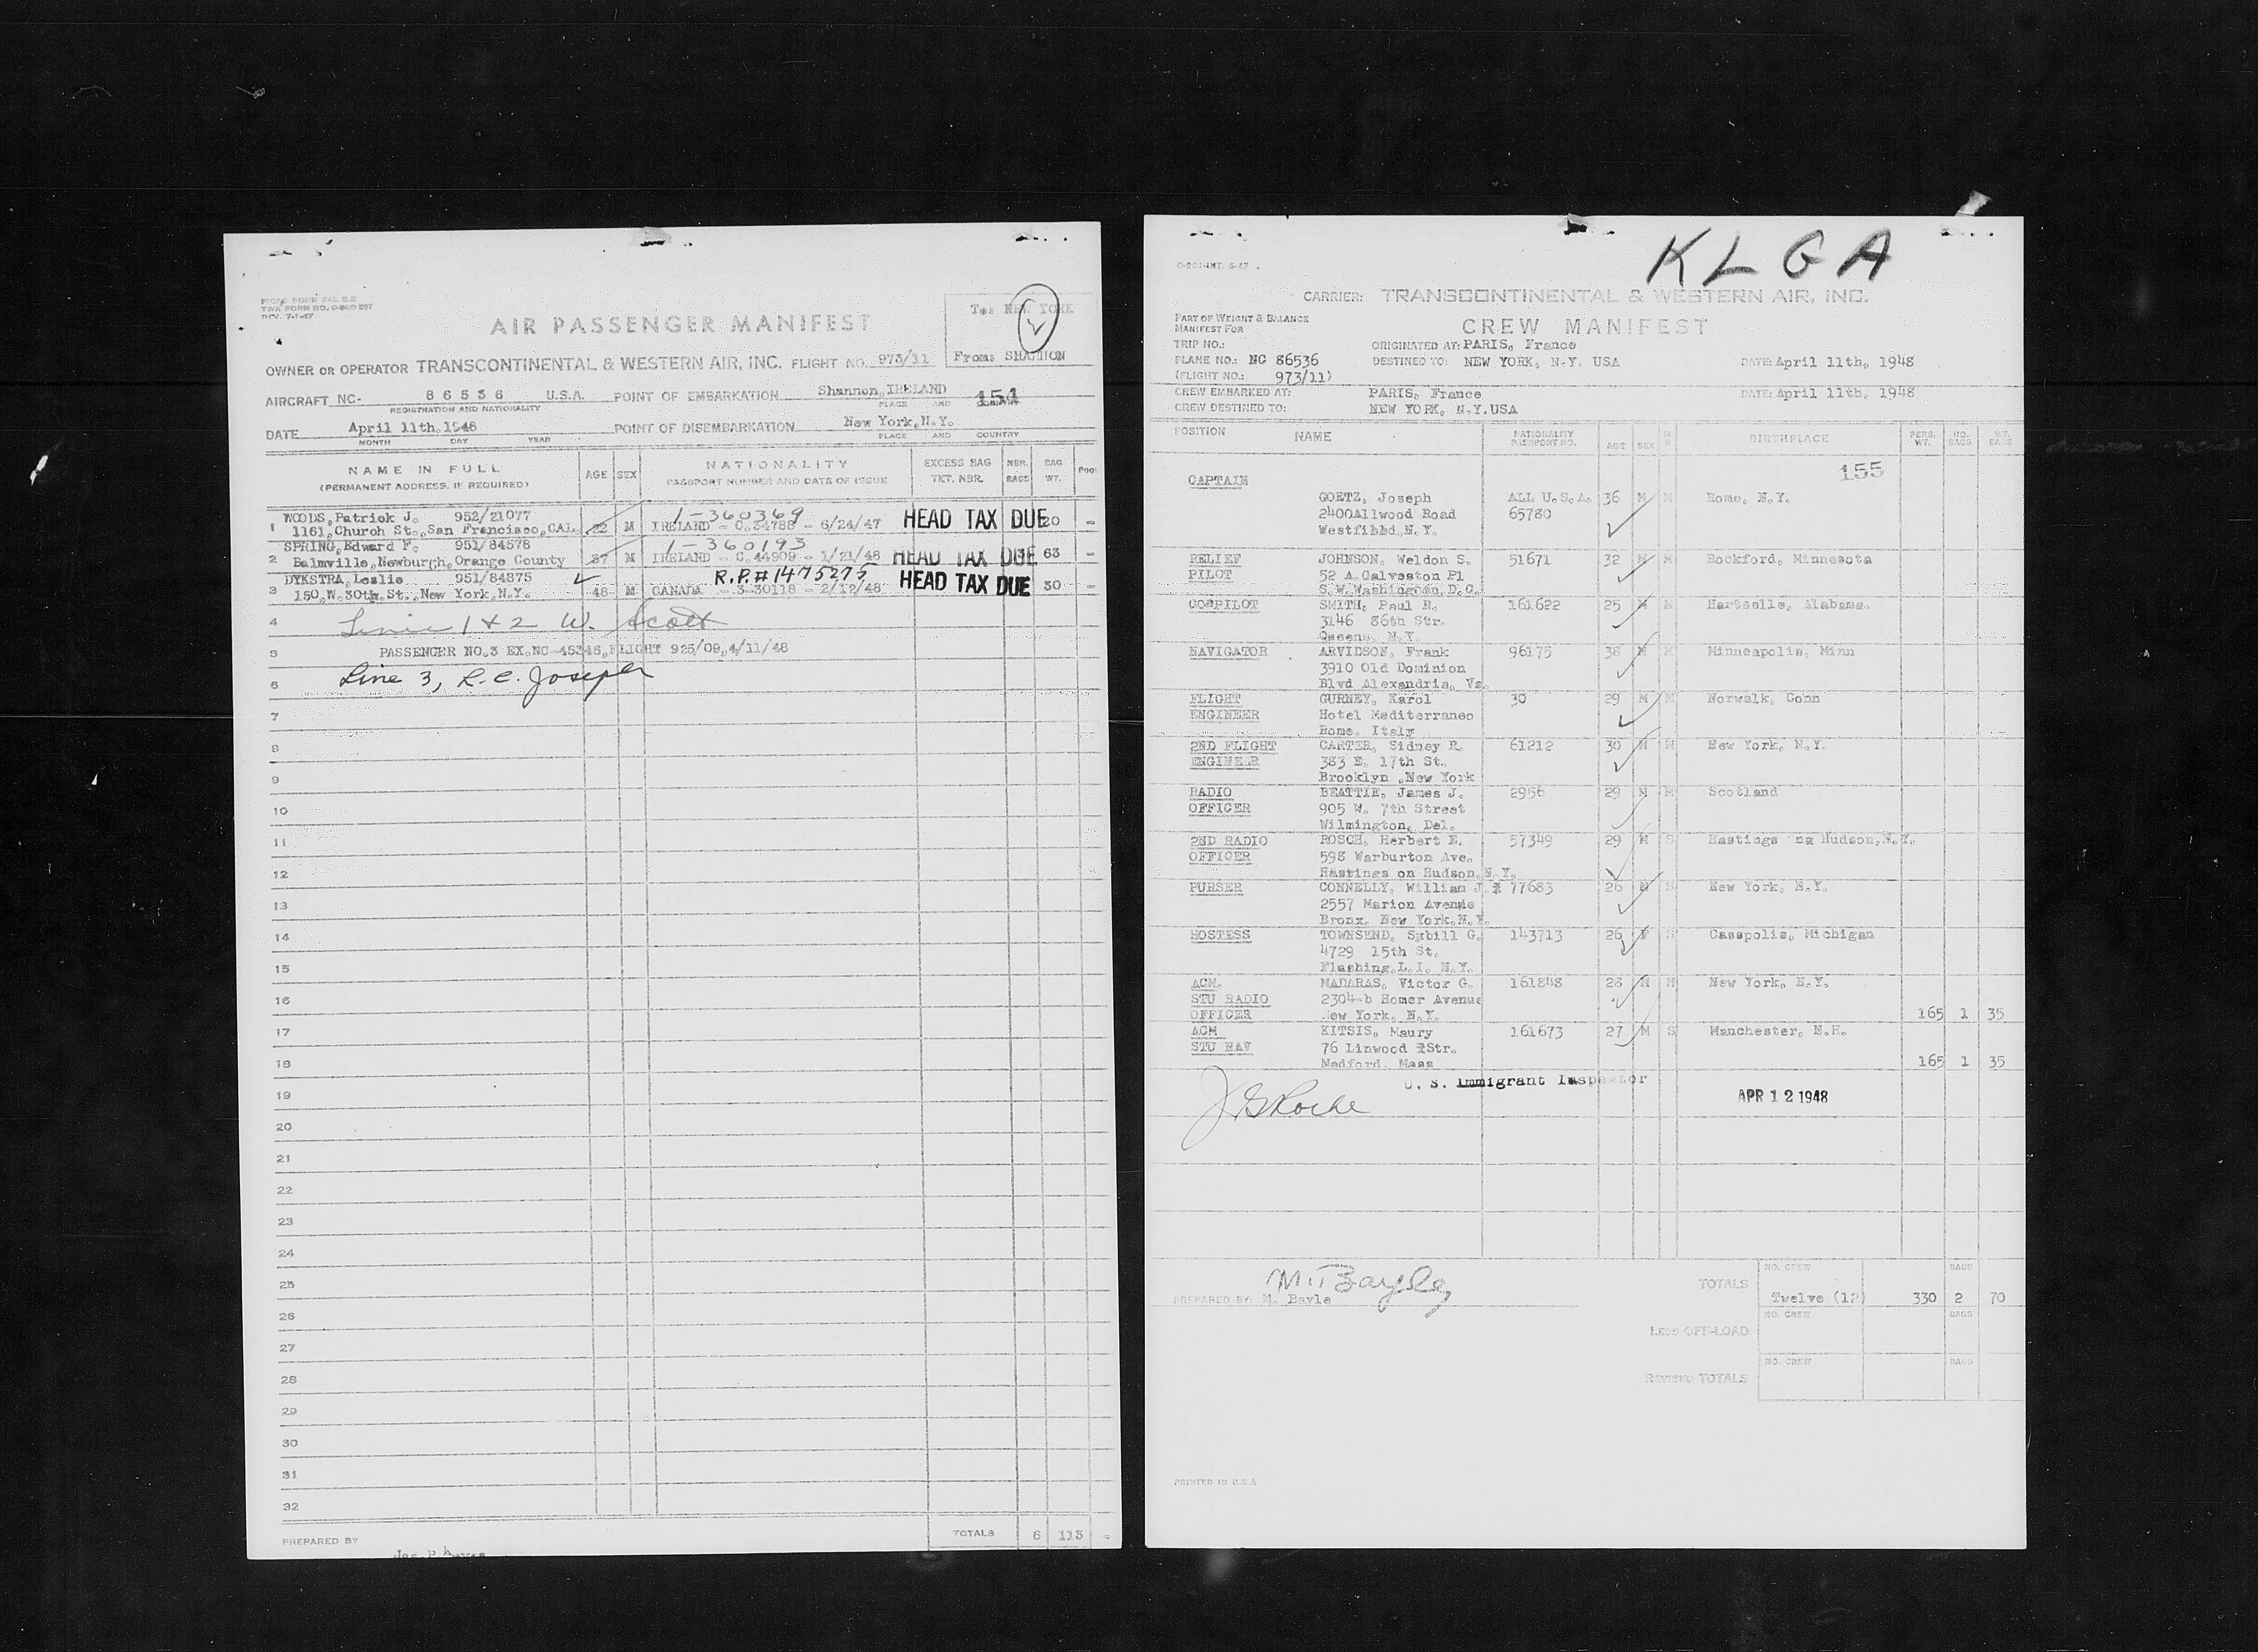 MICRO FORM FAL 2.2
TWA FORM NO. O-800 INT
REV. 7-1-47
To: NEW YORK
AIR PASSENGER MANIFEST
From: SHANNON
OWNER OR OPERATOR TRANSCONTINENTAL & WESTERN AIR, INC. FLIGHT NO. 973/11
AIRCRAFT NC- 86536 U.S.A. POINT OF EMBARKATION Shannon, IRELAND
REGISTRATION AND NATIONALITY PLACE AND COUNTRY
154
DATE April 11th, 1948 POINT OF DISEMBARKATION New York, N.Y.
MONTH DAY YEAR PLACE AND COUNTRY
NAME IN FULL AGE SEX NATIONALITY EXCESS BAG NBR. BAG Pool
(PERMANENT ADDRESS, IF REQUIRED) PASSPORT NUMBER AND DATE OF ISSUE TKT. NBR. BAGS WT.
WOODS, Patrick J. 952/21077 1-360369
1 1161, Church St., San Francisco, CAL 22 M IRELAND - C.34788 - 6/24/47 HEAD TAX DUE 20 -
SPRING, Edward F. 951/84578 1-360193
2 Balmville, Newburgh, Orange County 37 M IRELAND - C.44909 - 1/21/48 HEAD TAX DUE 63 -
DYKSTRA, Leslie 951/84875 R.P.# 1475275
3 150, W. 30th, St., New York, N.Y. 48 M CANADA - 3-30118 - 2/12/48 HEAD TAX DUE 30 -
4 Line 1 & 2 W. Scott
5 PASSENGER NO.3 EX.NC-45346, FLIGHT 925/09, 4/11/48
6 Line 3, R.C. Joseph
7
8
9
10
11
12
13
14
15
16
17
18
19
20
21
22
23
24
25
26
27
28
29
30
31
32
TOTALS 6 113 -
PREPARED BY
KLGA
O-901-INT. 6-47
CARRIER: TRANSCONTINENTAL & WESTERN AIR, INC.
PART OF WEIGHT & BALANCE
MANIFEST FOR
CREW MANIFEST
TRIP NO.: ORIGINATED AT: PARIS, France
PLANE NO.: NC 86536 DESTINED TO: NEW YORK, N.Y. USA DATE: April 11th, 1948
(FLIGHT NO.: 973/11)
CREW EMBARKED AT: PARIS, France DATE: April 11th, 1948
CREW DESTINED TO: NEW YORK, N.Y.USA
POSITION NAME NATIONALITY PASSPORT NO. AGE SEX BIRTHPLACE PERS. WT. NO. BAGS WT. BAGS
155
CAPTAIN
GOETZ, Joseph ALL U.S.A. 36 M M Rome, N.Y.
2400Allwood Road 65780
Westfibbd, N.Y.
RELIEF JOHNSON, Weldon S. 51671 32 M M Rockford, Minnesota
PILOT 52 A Galveston Pl
S.W.Washington, D.C.
COPILOT SMITH, Paul R. 161622 25 M M Hartselle, Alabama.
3146 86th Str.
Queens, N.Y.
NAVIGATOR ARVIDSON, Frank 96175 38 M M Minneapolis, Minn
3910 Old Dominion
Blvd Alexandria, Va.
FLIGHT GURNEY, Karol 30 29 M M Norwalk, Conn
ENGINEER Hotel Mediterraneo
Rome, Italy
2ND FLIGHT CARTER, Sidney R. 61212 30 M M New York, N.Y.
ENGINEER 383 E. 17th St.
Brooklyn ,New York
RADIO BEATTIE, James J. 2956 29 M M Scotland
OFFICER 905 W. 7th Street
Wilmington, Del.
2ND RADIO ROSCH, Herbert E. 57349 29 M S Hastings ng Hudson,N.Y.
OFFICER 598 Warburton Ave.
Hastings on Hudson,N.Y.
PURSER CONNELLY, William J. 77683 26 M S New York, N.Y.
2557 Marion Avenue
Bronx, New York,N.Y.
HOSTESS TOWNSEND, Sybill G. 143713 26 F S Casspolis, Michigan
4729 15th St.
Flushing,L.I. N.Y.
ACM. MADARAS, Victor G. 161848 28 M M New York, N.Y.
STU RADIO 2304-b Homer Avenue
OFFICER New York, N.Y. 165 1 35
ACM KITSIS, Maury 161673 27 M S Manchester, N.H.
STU NAV 76 Linwood Str.
Medford, Mass 165 1 35
U. S. Immigrant Inspector
J G Roche APR 12 1948
M. Bayle
PREPARED BY: M. Bayle
NO. CREW BAGS
TOTALS Twelve (12) 330 2 70
NO. CREW BAGS
LESS OFF-LOAD
NO. CREW BAGS
REVISED TOTALS
PRINTED IN U.S.A